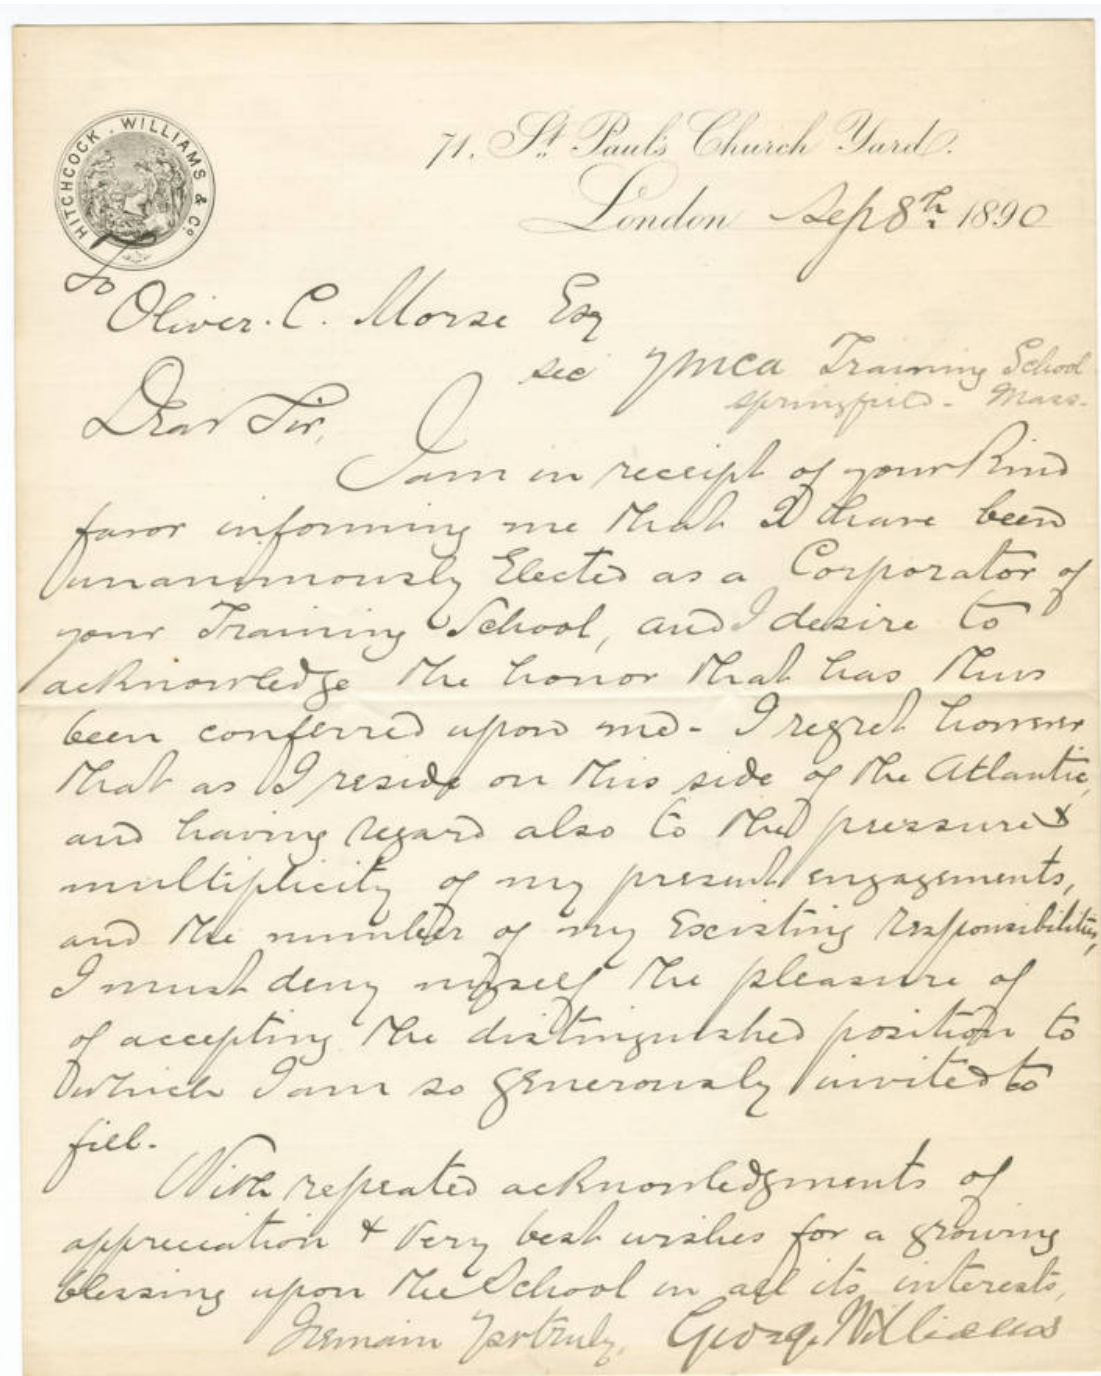 HITCHCOCK, WILLIAMS & Co.
71, St. Paul's Church Yard.
London Sep 8th. 1890
To
Oliver. C. Morse Esq
sec YMCA Training School
Springfield - Mass.
Dear Sir,
I am in receipt of your kind
favor informing me that I have been
unanimously Elected as a Corporator of
your Training School, and I desire to
acknowledge the honor that has thus
been conferred upon me - I regret however
that as I reside on this side of the Atlantic,
and having regard also to the pressure &
multiplicity of my present engagements,
and the number of my Existing responsibilities,
I must deny myself the pleasure of
of accepting the distinguished position to
which I am so generously invited to
fill.
With repeated acknowledgments of
appreciation & very best wishes for a growing
blessing upon the School in all its interests,
I remain Yrs truly, George Williams